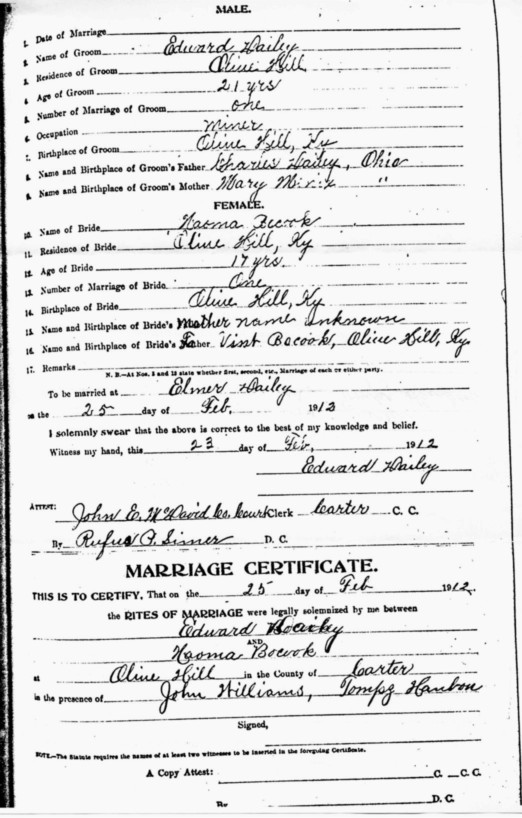 MALE.
1. Date of Marriage
2. Name of Groom Edward Dailey
3. Residence of Groom Olive Hill
4. Age of Groom 21 yrs
5. Number of Marriage of Groom one
6. Occupation Miner
7. Birthplace of Groom Olive Hill, Ky
8. Name and Birthplace of Groom's Father Charles Dailey, Ohio
9. Name and Birthplace of Groom's Mother Mary "
FEMALE.
10. Name of Bride Naoma Bocook
11. Residence of Bride Olive Hill, Ky
12. Age of Bride 17 yrs.
13. Number of Marriage of Bride One
14. Birthplace of Bride Olive Hill, Ky
15. Name and Birthplace of Bride's Mother name unknown
16. Name and Birthplace of Bride's Father Vint Bocook, Olive Hill, Ky
17. Remarks
N. B.—At Nos. 5 and 13 state whether first, second, etc., Marriage of each or either party.
To be married at Elmer Dailey
on the 25 day of Feb, 1912
I solemnly swear that the above is correct to the best of my knowledge and belief.
Witness my hand, this 23 day of Feb, 1912
Edward Dailey
ATTEST:
John E. McDavid Co. Court Clerk Carter C. C.
By Rufus D. C.
MARRIAGE CERTIFICATE.
THIS IS TO CERTIFY, That on the 25 day of Feb 1912.
the RITES OF MARRIAGE were legally solemnized by me between
Edward
AND
Naoma Bocook
at Olive Hill in the County of Carter
in the presence of John Williams,
Signed,
NOTE.—The Statute requires the names of at least two witnesses to be inserted in the foregoing Certificate.
A Copy Attest: C. C. C.
By D. C.